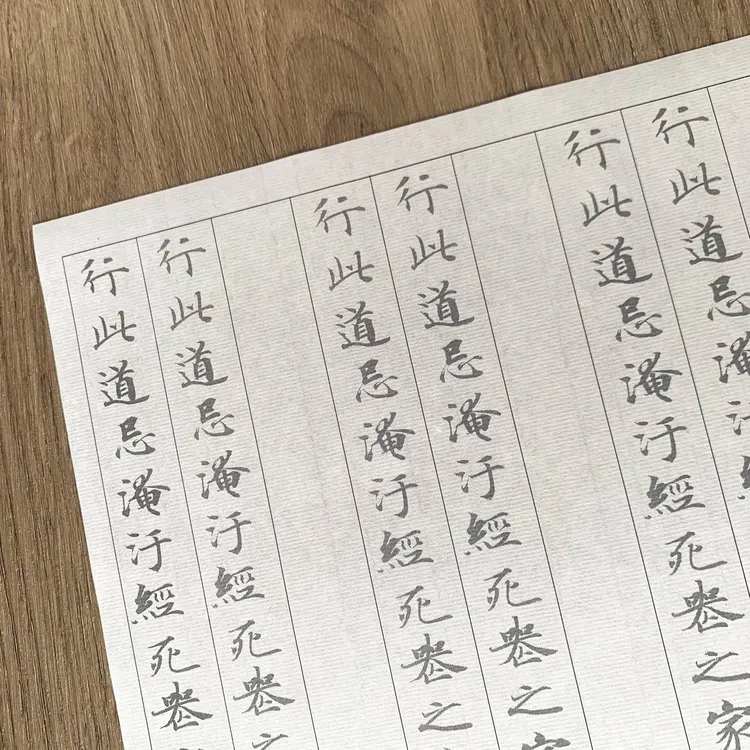 行此道忌淹汙
行此道忌淹汙經死喪之家
行此道忌淹汙經死喪之家
行此道忌淹汙經死喪之
行此道忌淹汙經死喪之
行此道忌淹汙經死喪